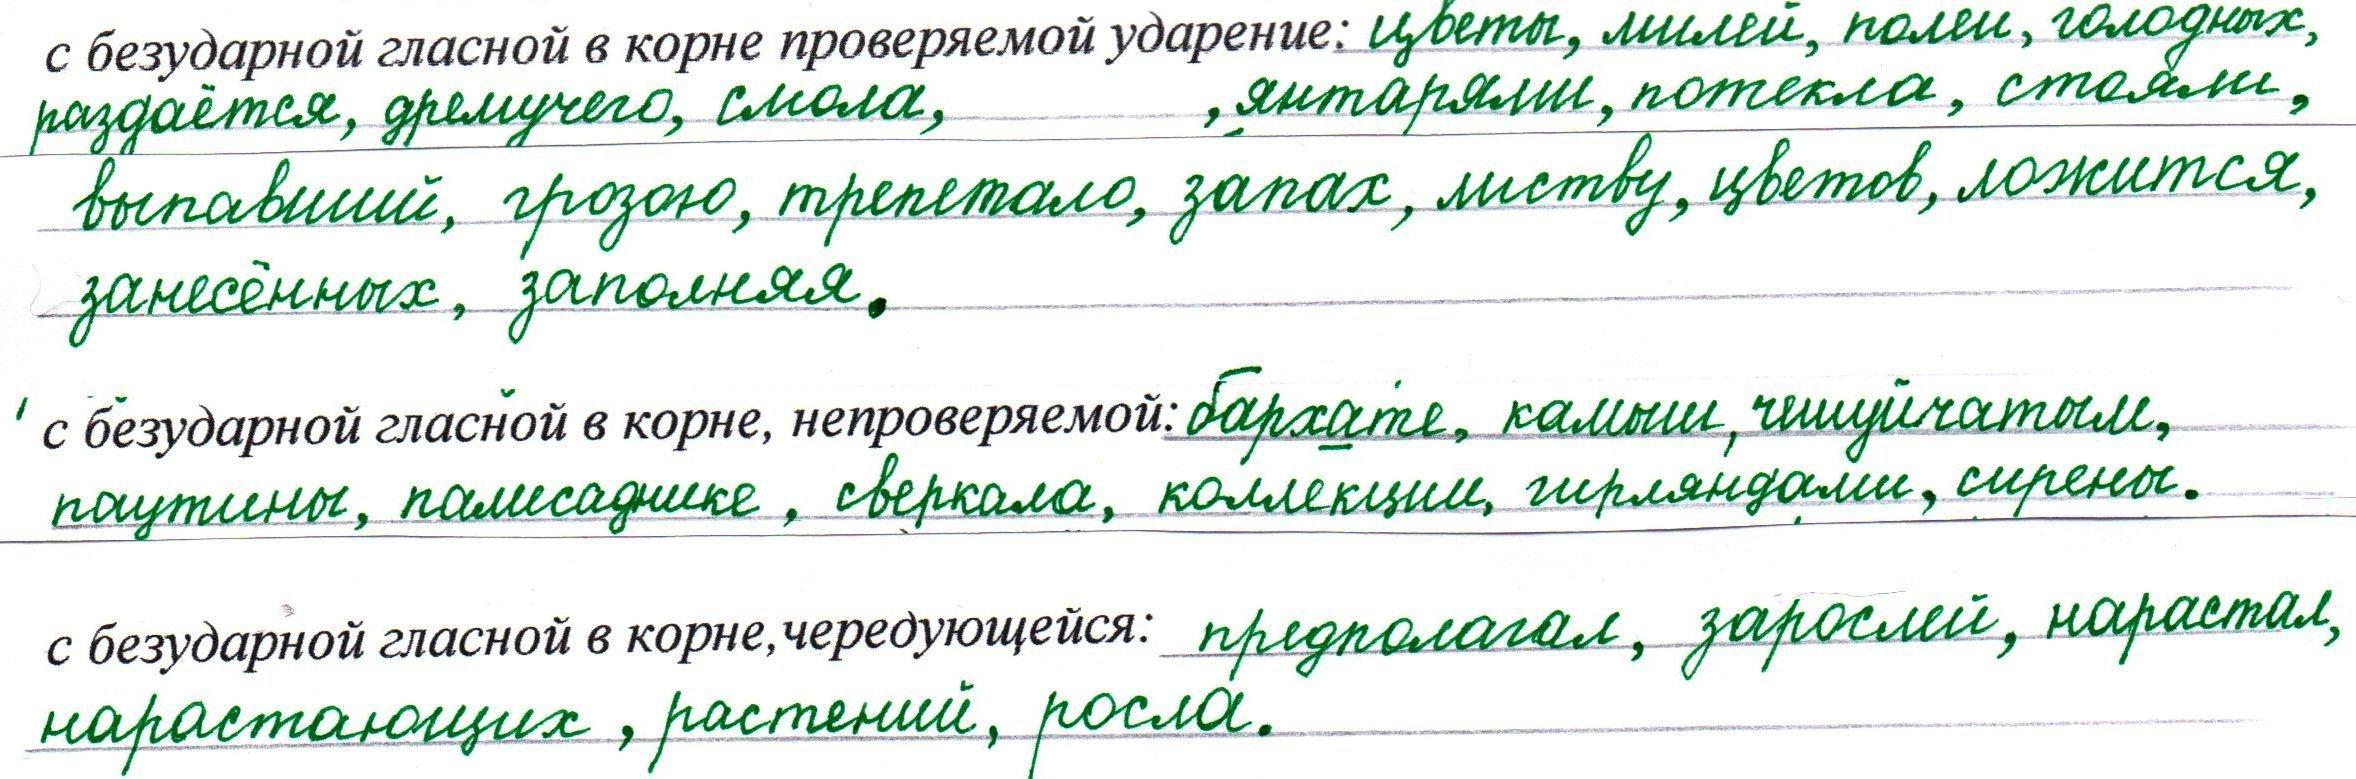 с безударной гласной в корне проверяемой ударение: цветы, милей, полей, голодных,
раздаётся, дремучего, смола, , янтарями, потекла, стояли,
выпавший, грозою, трепетало, запах, листву, цветов, ложится,
занесённых, заполняя.
с безударной гласной в корне, непроверяемой: бархате, камыш, чешуйчатым,
паутины, палисаднике, сверкала, коллекции, гирляндами, сирены.
с безударной гласной в корне, чередующейся: предполагал, зарослей, нарастал,
нарастающих, растений, росла.